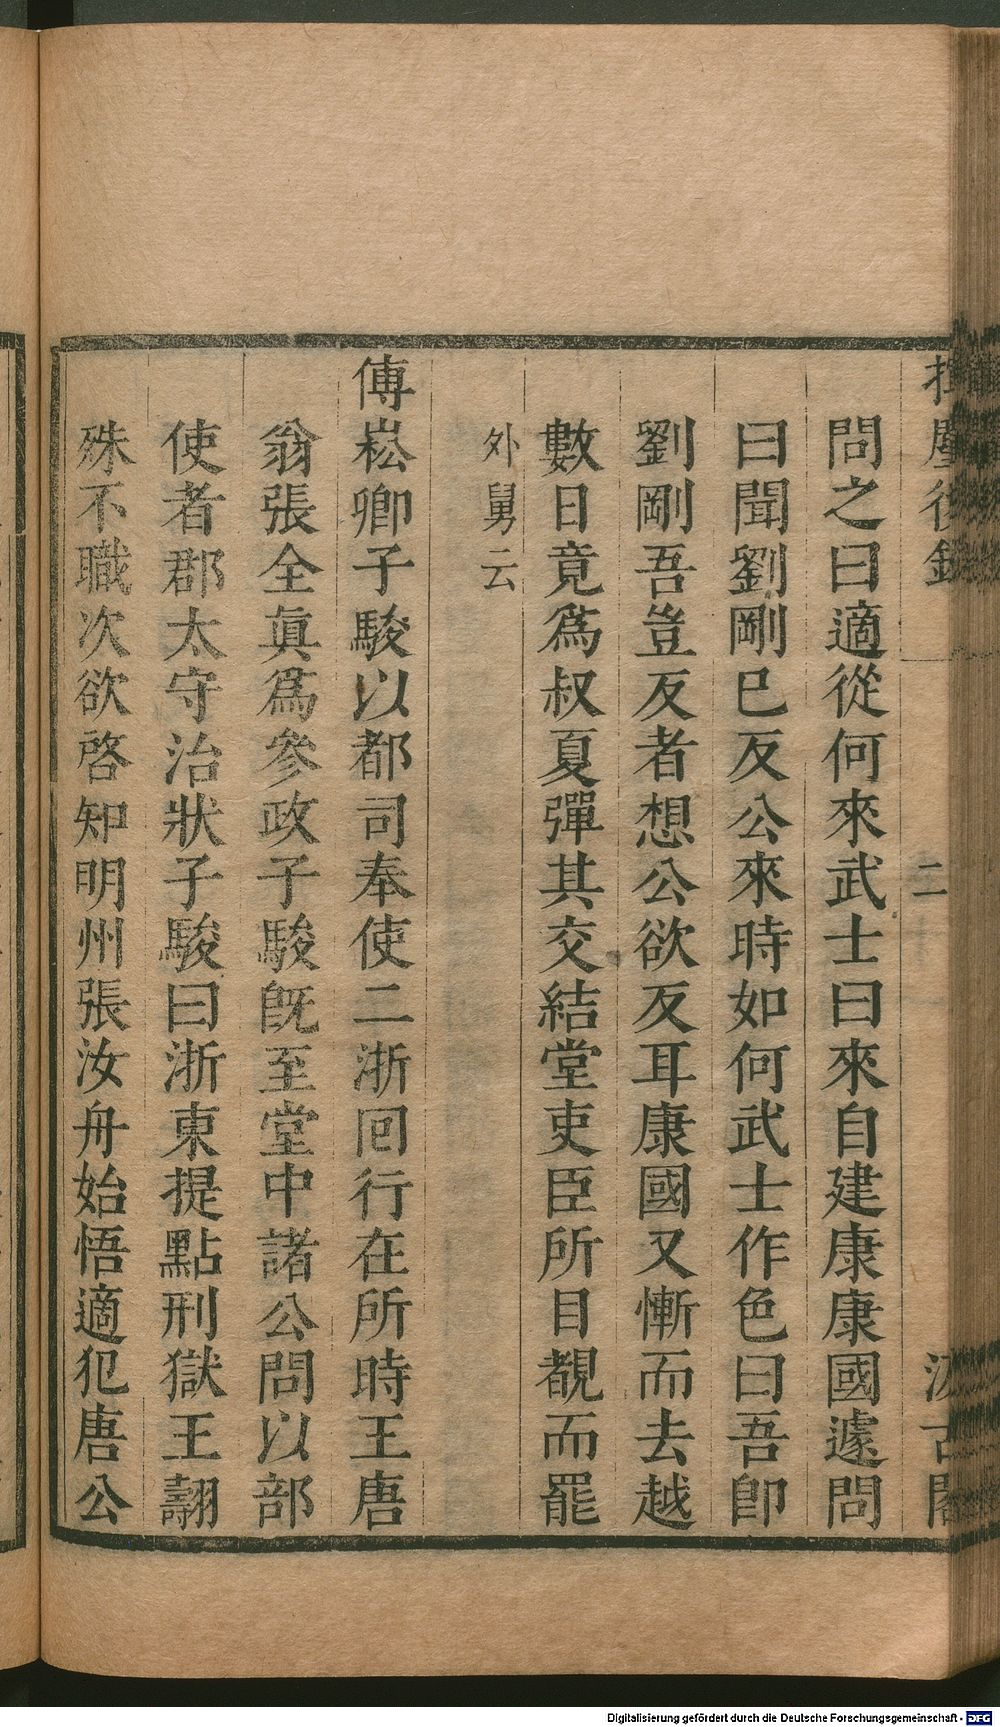 揮麈後錄
二
汲古閣
問之曰適從何來武士曰來自建康康國遽問
曰聞劉剛巳反公來時如何武士作色曰吾卽
劉剛吾豈反者想公欲反耳康國又慚而去越
數日竟爲叔夏彈其交結堂吏臣所目覩而罷
外舅云
傅崧卿子駿以都司奉使二浙回行在所時王唐
翁張全眞爲參政子駿旣至堂中諸公問以部
使者郡太守治狀子駿曰浙東提點刑獄王翿
殊不職次欲啓知明州張汝舟始悟適犯唐公
Digitalisierung gefördert durch die Deutsche Forschungsgemeinschaft - DFG